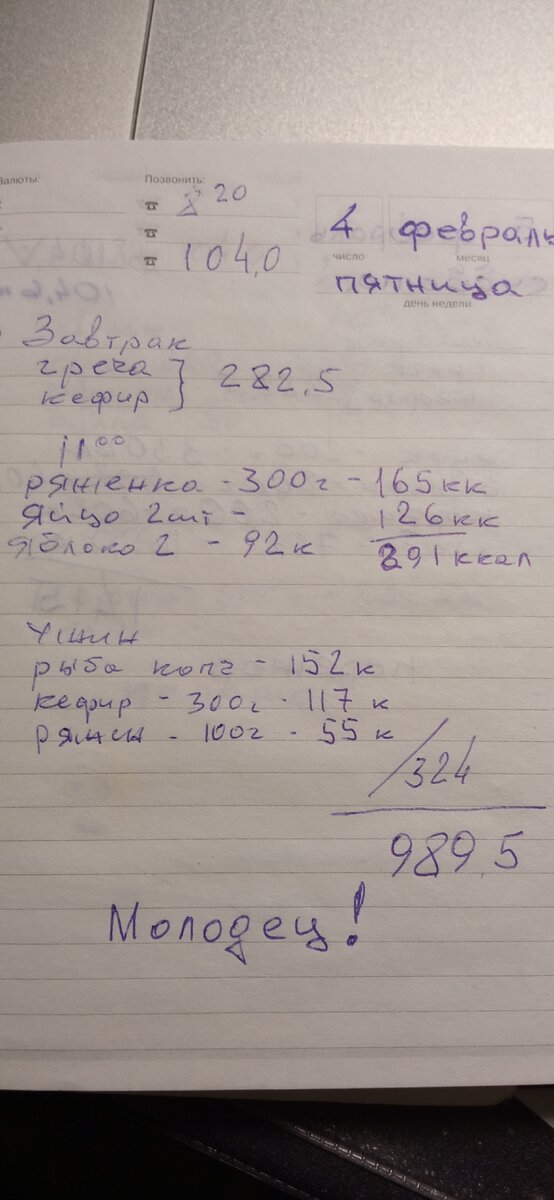 Валюты:
Позвонить:
8 20
104,0
4 февраль
число месяц
пятница
день недели
Завтрак
греча
кефир } 282,5
11 00
ряженка - 300г - 165кк
яйцо 2шт - 126кк
яблоко 2 - 92к 391ккал
Ужин
рыба копч - 152к
кефир - 300г - 117к
ряжен - 100г - 55к
324
989,5
Молодец!